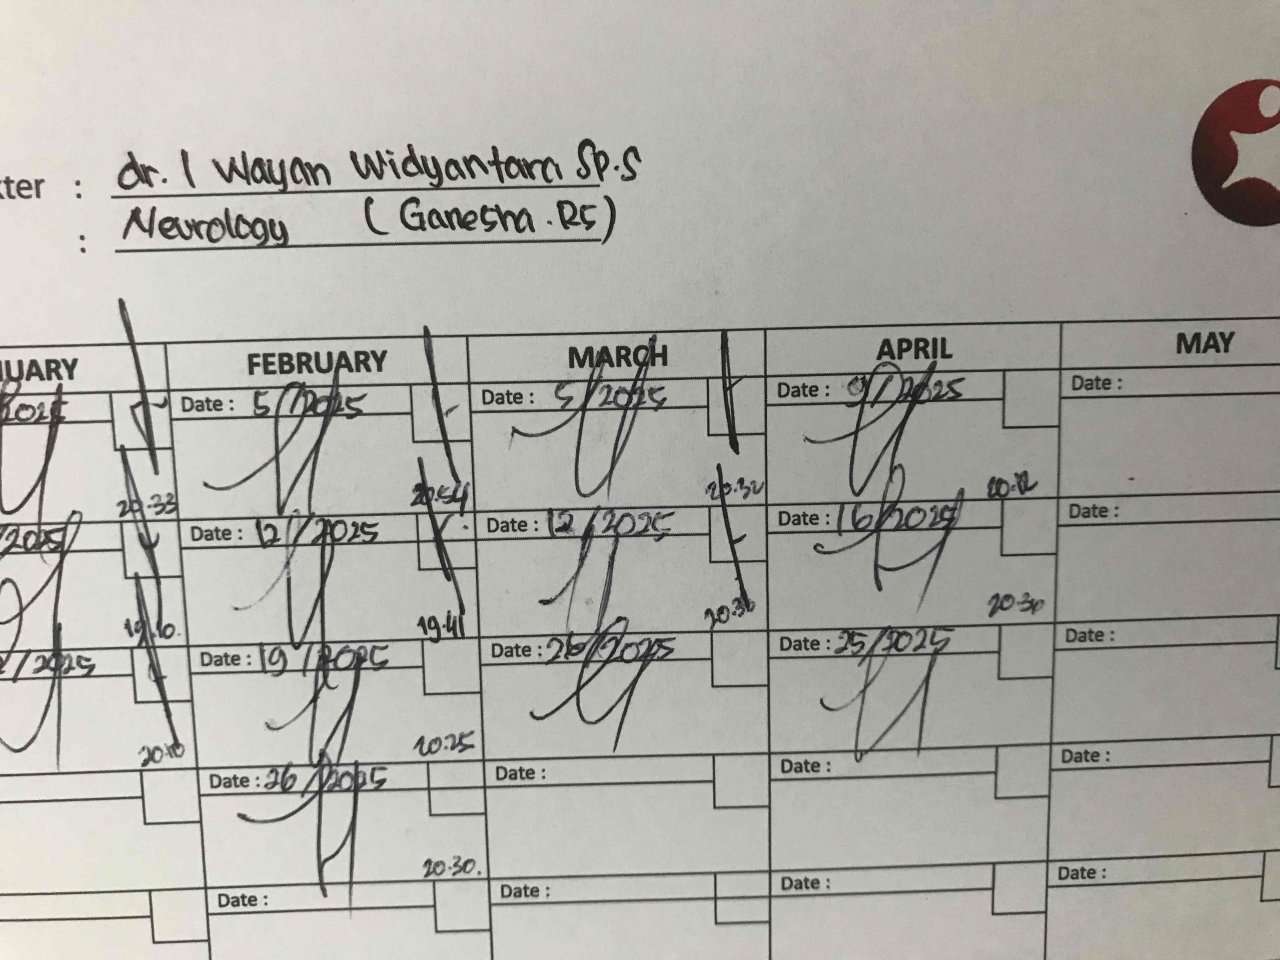 kter : dr. I Wayan Widyantara Sp.S
: Neurology (Ganesha.RS)
UARY FEBRUARY MARCH APRIL MAY
2025 Date : 5/2025 Date : 5/2025 Date : 9/2025 Date :
20.33 20.54 20.32 20.12
/2025 Date : 12/2025 Date : 12/2025 Date : 16/2025 Date :
19.10. 19.41 20.36 20.30
/2025 Date : 19/2025 Date : 26/2025 Date : 25/2025 Date :
20.10 20.25
Date : 26/2025 Date : Date : Date :
20.30.
Date : Date : Date : Date :